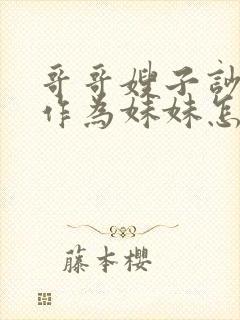 哥哥嫂子訬
作為妹妹怎
藤本櫻